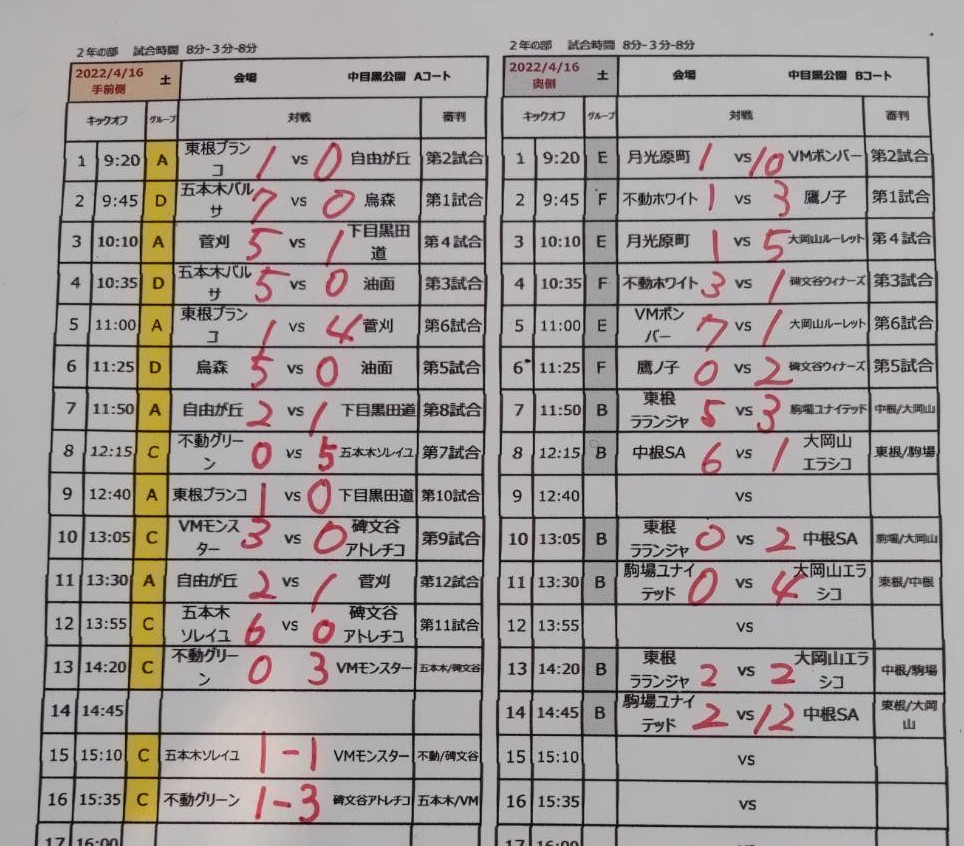 2年の部 試合時間 8分-3分-8分
2022/4/16 土 会場 中目黒公園 Aコート
手前側
キックオフ グループ 対戦 審判
1 9:20 A 東根ブランコ 1 vs 0 自由が丘 第2試合
2 9:45 D 五本木バルサ 7 vs 0 烏森 第1試合
3 10:10 A 菅刈 5 vs 1 下目黒田道 第4試合
4 10:35 D 五本木バルサ 5 vs 0 油面 第3試合
5 11:00 A 東根ブランコ 1 vs 4 菅刈 第6試合
6 11:25 D 烏森 5 vs 0 油面 第5試合
7 11:50 A 自由が丘 2 vs 1 下目黒田道 第8試合
8 12:15 C 不動グリーン 0 vs 5 五本木ソレイユ 第7試合
9 12:40 A 東根ブランコ 1 vs 0 下目黒田道 第10試合
10 13:05 C VMモンスター 3 vs 0 碑文谷アトレチコ 第9試合
11 13:30 A 自由が丘 2 vs 1 菅刈 第12試合
12 13:55 C 五本木ソレイユ 6 vs 0 碑文谷アトレチコ 第11試合
13 14:20 C 不動グリーン 0 3 VMモンスター 五本木/碑文谷
14 14:45
15 15:10 C 五本木ソレイユ 1-1 VMモンスター 不動/碑文谷
16 15:35 C 不動グリーン 1-3 碑文谷アトレチコ 五本木/VM
17 16:00
2年の部 試合時間 8分-3分-8分
2022/4/16 土 会場 中目黒公園 Bコート
奥側
キックオフ グループ 対戦 審判
1 9:20 E 月光原町 1 vs 10 VMボンバー 第2試合
2 9:45 F 不動ホワイト 1 vs 3 鷹ノ子 第1試合
3 10:10 E 月光原町 1 vs 5 大岡山ルーレット 第4試合
4 10:35 F 不動ホワイト 3 vs 1 碑文谷ウィナーズ 第3試合
5 11:00 E VMボンバー 7 vs 1 大岡山ルーレット 第6試合
6 11:25 F 鷹ノ子 0 vs 2 碑文谷ウィナーズ 第5試合
7 11:50 B 東根ラランジャ 5 vs 3 駒場ユナイテッド 中根/大岡山
8 12:15 B 中根SA 6 vs 1 大岡山エラシコ 東根/駒場
9 12:40 vs
10 13:05 B 東根ラランジャ 0 vs 2 中根SA 駒場/大岡山
11 13:30 B 駒場ユナイテッド 0 vs 4 大岡山エラシコ 東根/中根
12 13:55 vs
13 14:20 B 東根ラランジャ 2 vs 2 大岡山エラシコ 中根/駒場
14 14:45 B 駒場ユナイテッド 2 vs 12 中根SA 東根/大岡山
15 15:10 vs
16 15:35 vs
17 16:00